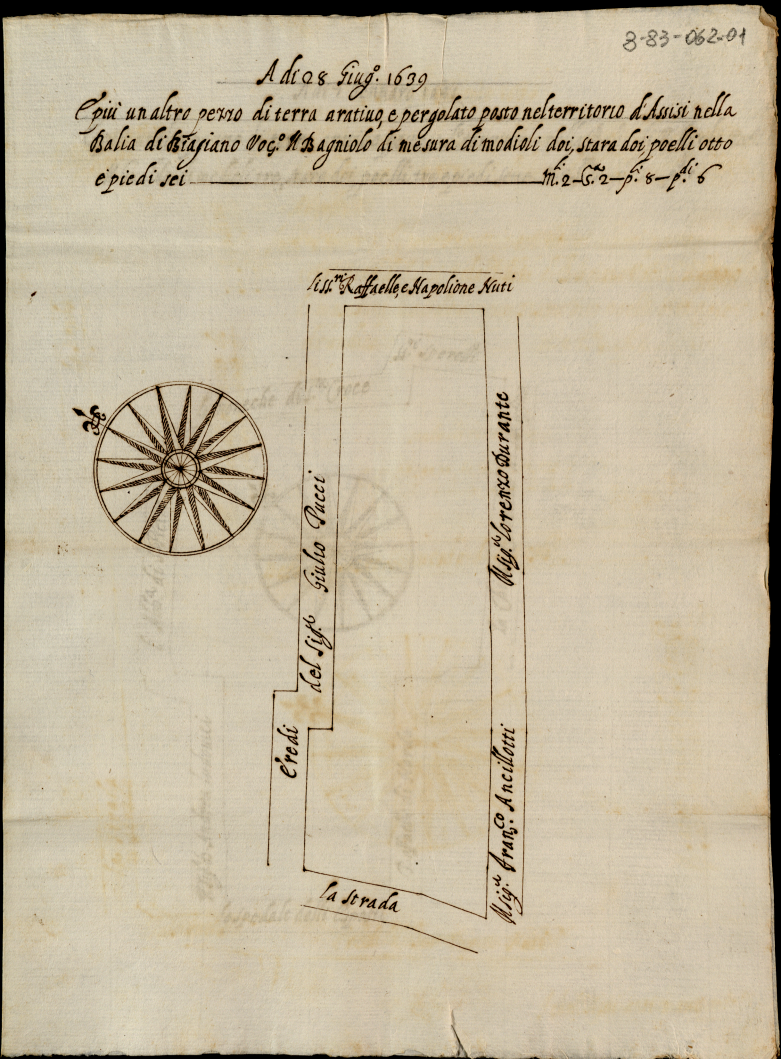 3-83-062-01
A di 28 Giug.º 1639
E più un altro pezzo di terra arativo, e pergolato posto nel territorio d'Assisi nella
Balia di Biagiano Voc.º Il Bagniolo di mesura di modioli doi, stara doi, poelli otto
e piedi sei M.li 2 – S.ra 2 – p.li 8 – p.di 6
Siss.ri Raffaelle, e Napolione Nuti
Eredi del Sig.r Giulio Pucci
Il Sig.r Lorenzo Durante
Il Sig.r Fran.co Ancillotti
la strada